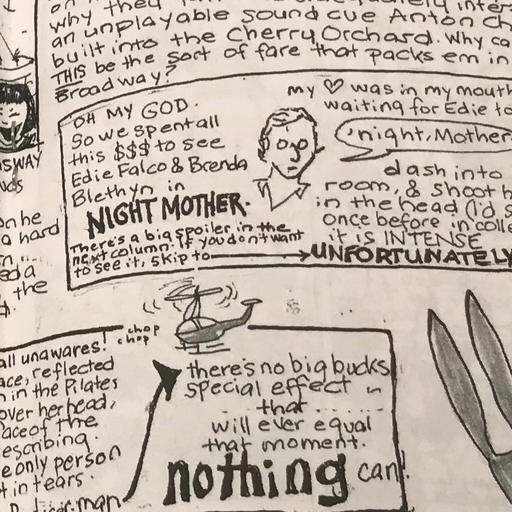 why they
an unplayable sound cue Anton Ch
built into the Cherry Orchard. Why ca
THIS be the sort of fare that packs em in
Broadway?
OH MY GOD.
So we spent all
this $$$ to see
Edie Falco & Brenda
Blethyn in
NIGHT MOTHER.
There's a big spoiler in the
next column. If you don't want
to see it, skip to
my ♡ was in my mouth
waiting for Edie to
'night, Mother
dash into
room, & shoot h
in the head (I'd s
once before in colle
it is INTENSE
UNFORTUNATELY
SWAY
on he
a hard
ed a
the
chop
chop
all unawares!
ace, reflected
in the Pilates
over her head,
ace of the
escribing.
e only person
t in tears.
man
there's no big bucks
special effect in
that......
will ever equal
that moment.
nothing can!